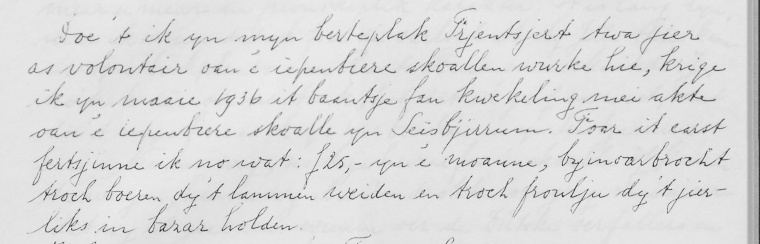 Doe't ik yn myn berteplak Trjentsjert twa jier
as volontair oan 'e iepenbiere skoallen wurke hie, krige
ik yn maaie 1936 it baantsje fan kwekeling mei akte
oan 'e iepenbiere skoalle yn Seisbjirrum. Foar it earst
fertsjinne ik no wat: f 25,- yn 'e moanne, byinoarbrocht
troch boeren, dy't lammen weiden en troch froulju dy't jier-
liks in bazar holden.